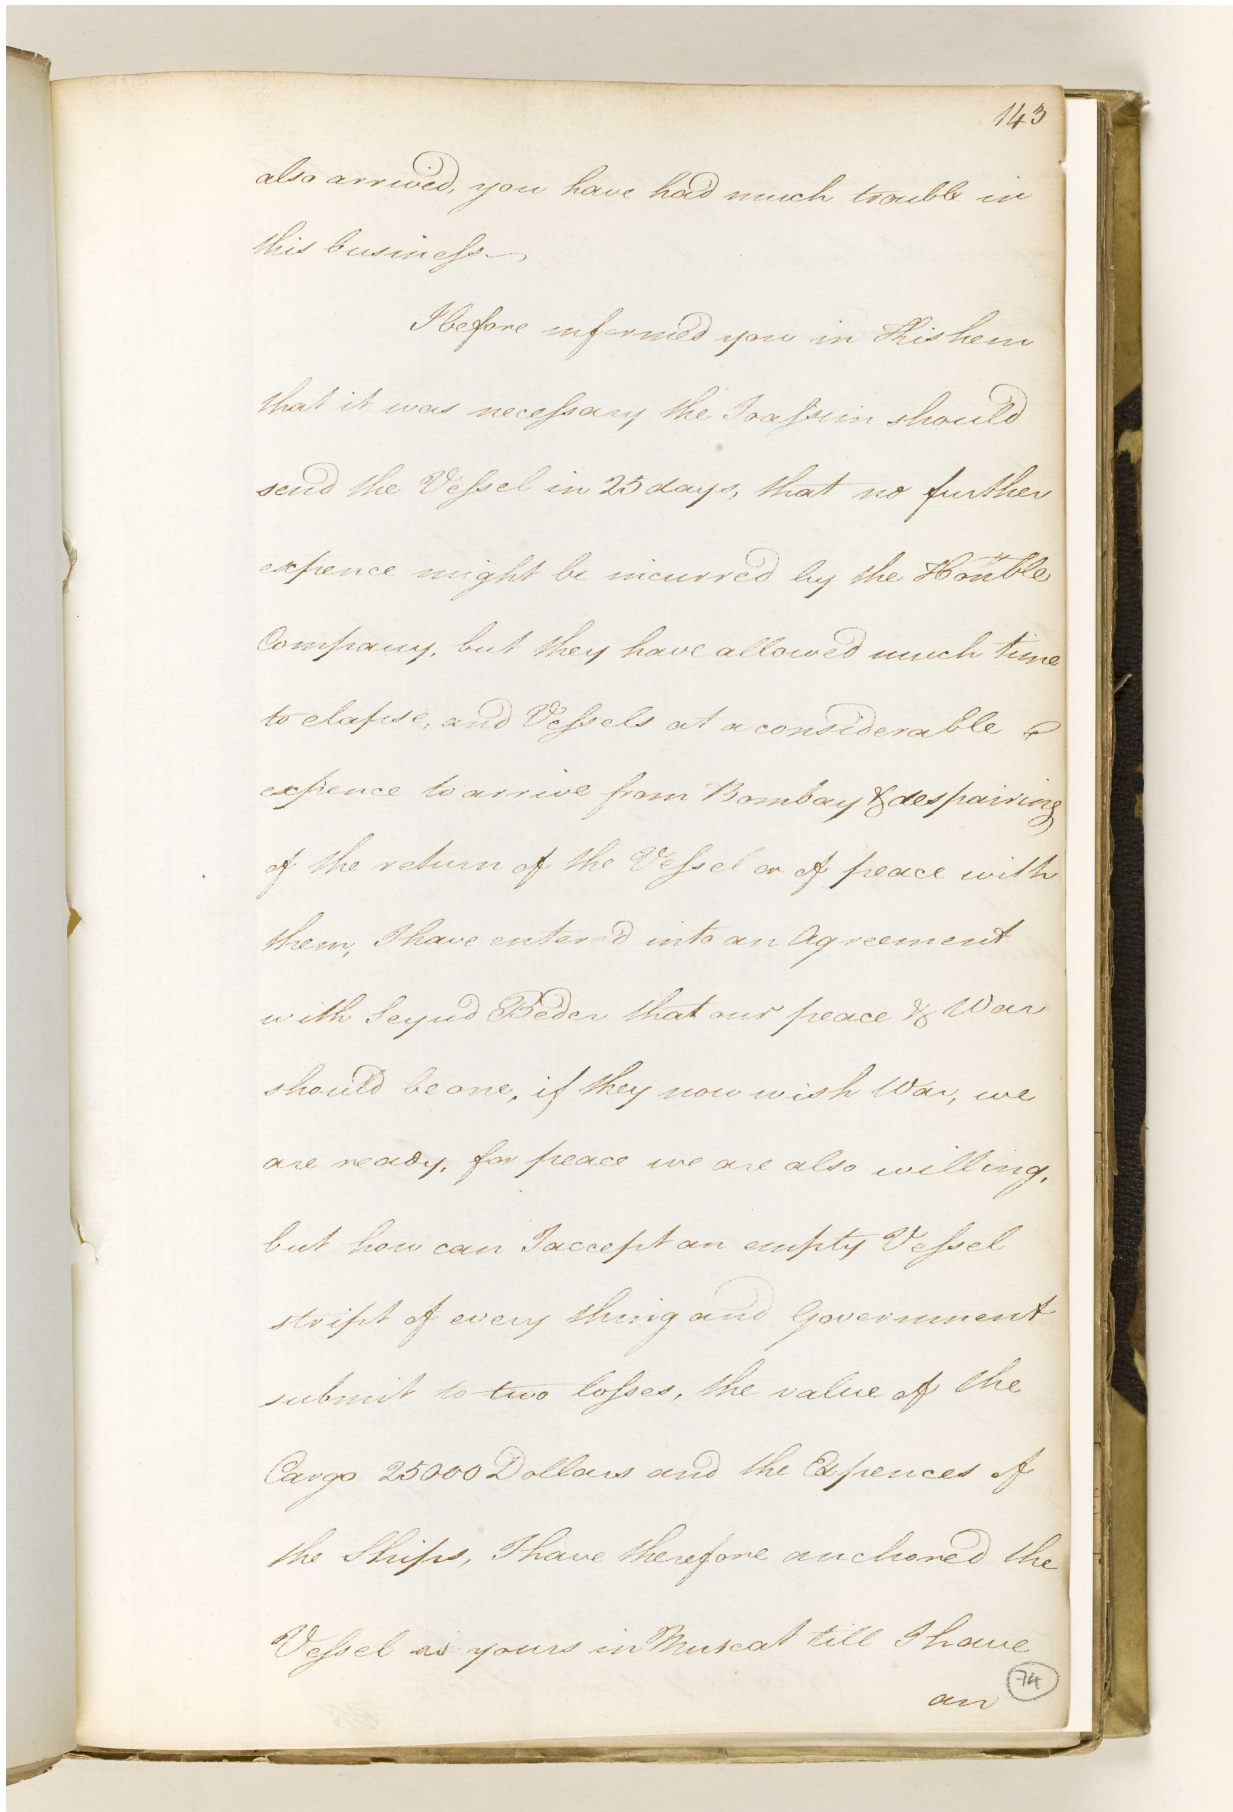 143
also arrived, you have had much trouble in
this business
I before informed you in Kishem
that it was necessary the Joassim should
send the Vessel in 25 days, that no further
expence might be incurred by the Honble
Company, but they have allowed much time
to elapse, and Vessels at a considerable
expence to arrive from Bombay & despairing
of the return of the Vessel or of peace with
them, I have entered into an Agreement
with Seyud Beder that our peace & War
should be one, if they now wish War, we
are ready, for peace we are also willing,
but how can I accept an empty Vessel
stript of every thing and Government
submit to two losses, the value of the
Cargo 25000 Dollars and the Expences of
the Ships, I have therefore anchored the
Vessel as yours in Muscat till I have
an
74